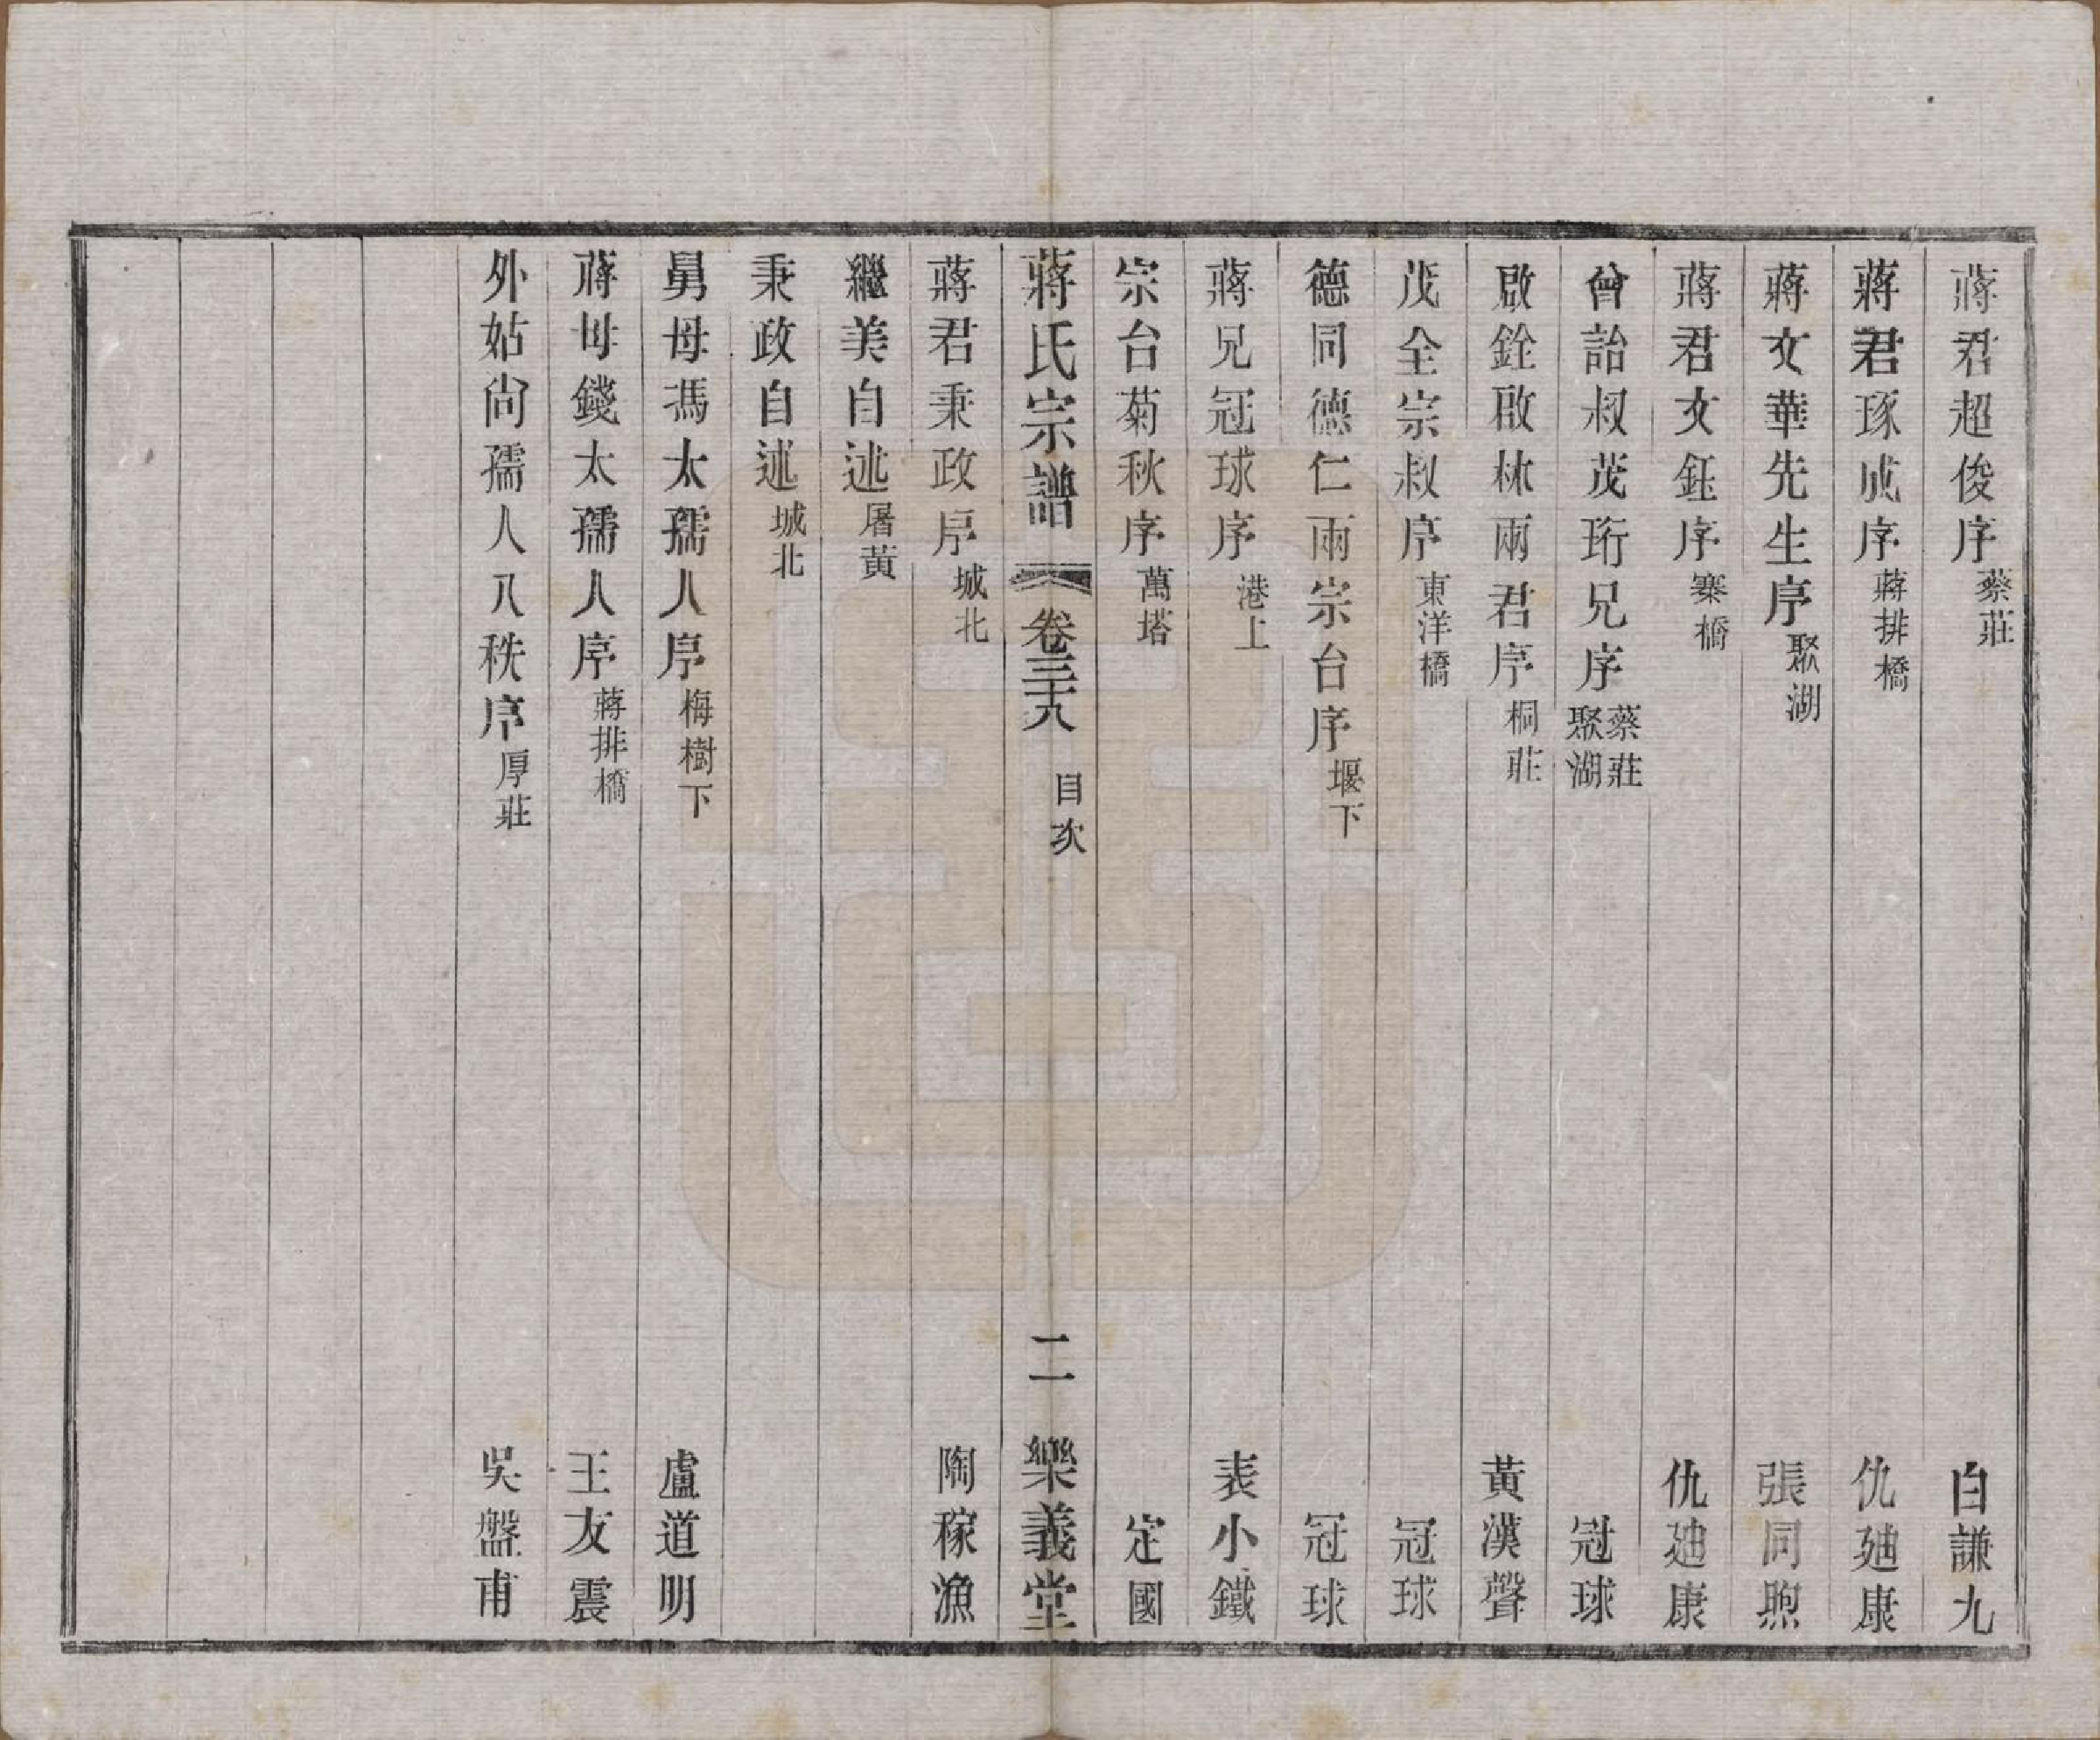 蔣君超俊序 蔡莊 白謙九
蔣君琢成序 蔣排橋 仇廸康
蔣文華先生序 聚湖 張同煦
蔣君文鈺序 寨橋 仇廸康
曾詒叔茂珩兄序 蔡莊 聚湖 冠球
啟銓啟林兩君序 桐莊 黃漢聲
茂全宗叔序 東洋橋 冠球
德同德仁兩宗台序 堰下 冠球
蔣兄冠球序 港上 袁小鐵
宗台菊秋序 萬塔 定國
蔣氏宗譜 卷三十八 目次 二 樂義堂
蔣君秉政序 城北 陶稼漁
繼美自述 屠黃
秉政自述 城北
舅母馮太孺人序 梅樹下 盧道明
蔣母錢太孺人序 蔣排橋 王友震
外姑尙孺人八秩序 厚莊 吳盤甫